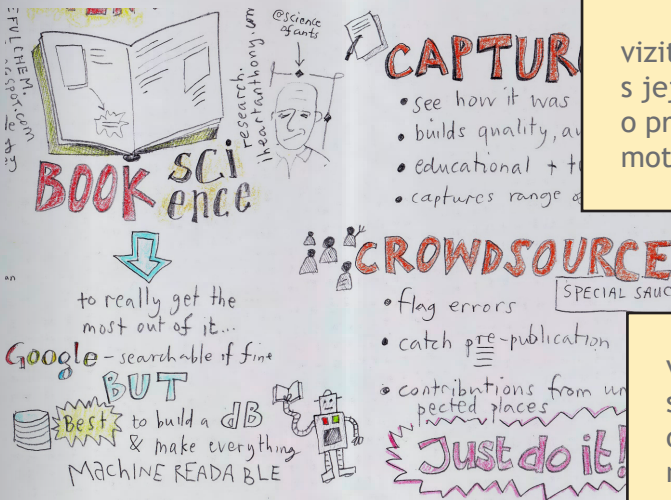 @science
of ants
research.
iheartanthony.com
BOOK science
to really get the
most out of it...
Google - searchable if fine
BUT
Best to build a dB
& make everything
MACHINE READABLE
CAPTUR
• see how it was
• builds quality, au
• educational + t
• captures range
CROWDSOURCE
SPECIAL SAUC
• flag errors
• catch pre-publication
• contributions from un
pected places
Just do it!
vizit
s jej
o pr
mot